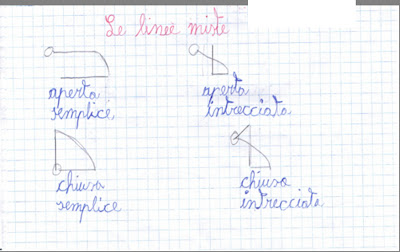 Le linee miste
aperta
semplice
aperta
intrecciata
chiusa
semplice
chiusa
intrecciata